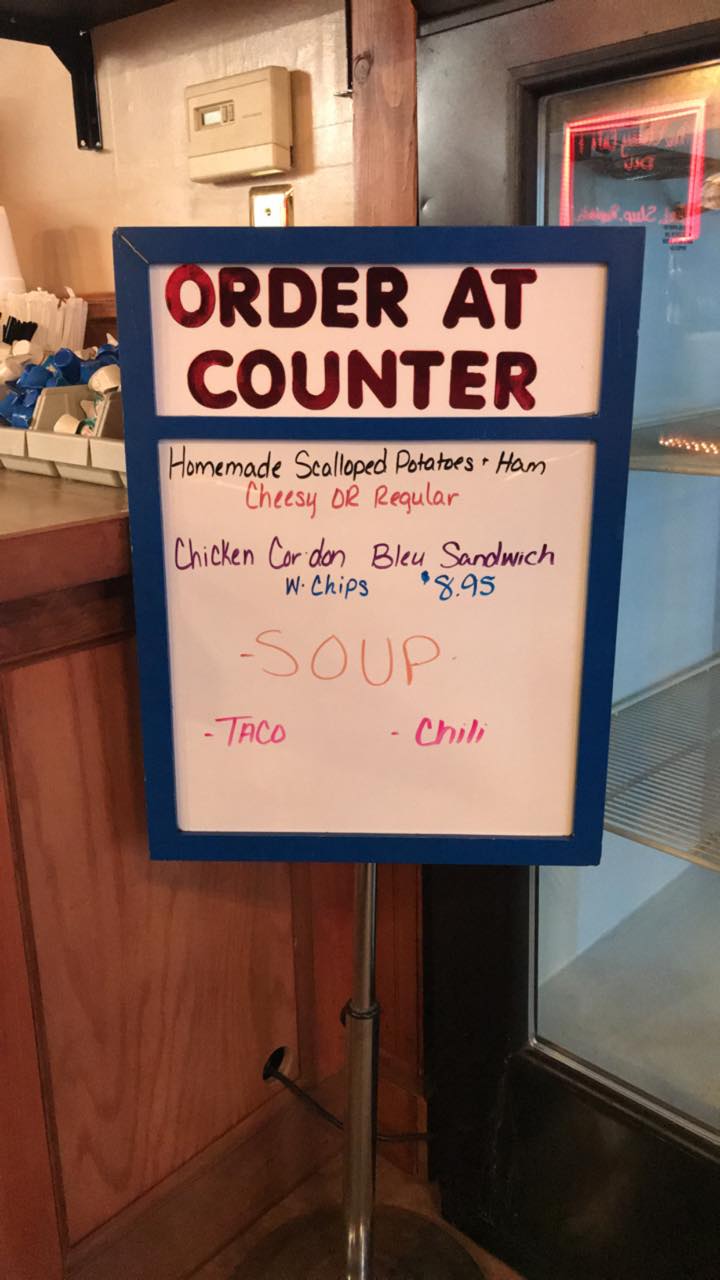 ORDER AT
COUNTER
Homemade Scalloped Potatoes + Ham
Cheesy OR Regular
Chicken Cordon Bleu Sandwich
W. Chips $8.95
-SOUP-
-TACO - Chili